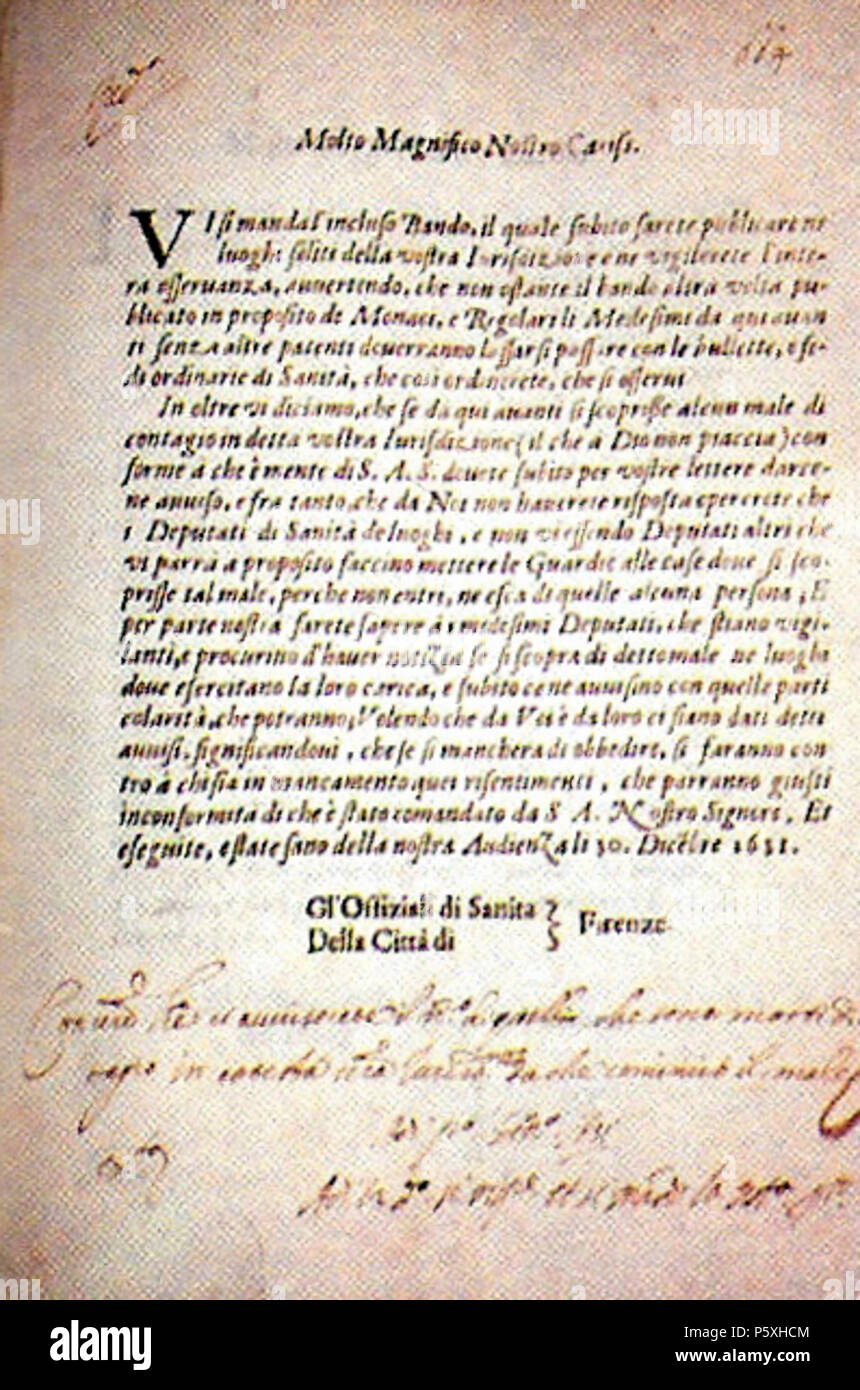 Molto Magnifico Nostro Cariss.
VI si manda l'incluso Bando, il quale subito farete publicare ne
luoghi soliti della vostra Iurisdizione e ne vigilerete l'inte-
ra osseruanza, auuertendo, che non ostante il bando altra volta pu-
blicato in proposito de Monaci, e Regolari li Medesimi da qui auan
ti senza altre patenti douerranno lassarsi passare con le bullette, o fe-
di ordinarie di Sanità, che così ordinerete, che si osserui
In oltre vi diciamo, che se da qui auanti si scoprisse alcun male di
contagio in detta vostra Iurisdizione (il che à Dio non piaccia) con
forme à che è mente di S. A. S. douete subito per vostre lettere darce-
ne auuiso, e fra tanto, che da Noi non hauerete risposta opererete che
i Deputati di Sanità de luoghi, e non vi essendo Deputati altri che
vi parrà a proposito faccino mettere le Guardie alle case doue si sco-
prisse tal male, perche non entri, ne esca di quelle alcuna persona, E
per parte nostra farete sapere à i medesimi Deputati, che stiano vigi-
lanti, e procurino d'hauer notizia se si scopra di detto male ne luoghi
doue esercitano la loro carica, e subito ce ne auuisino con quelle parti
colarità, che potranno, Volendo che da Voi è da loro ci siano dati detti
auuisi, significandoui, che se si mancherà di obbedire, si faranno con
tro à chi sia in mancamento quei risentimenti, che parranno giusti
in conformità di che è stato comandato da S. A. Nostro Signore, Et
eseguite, e state sano della nostra Audienza li 30. Dicẽbre 1631.
Gl'Offiziali di Sanita
Della Città di } Firenze
che sono morti di
in che comincio il male
alamy
alamy
Image ID: P5XHCM
www.alamy.com